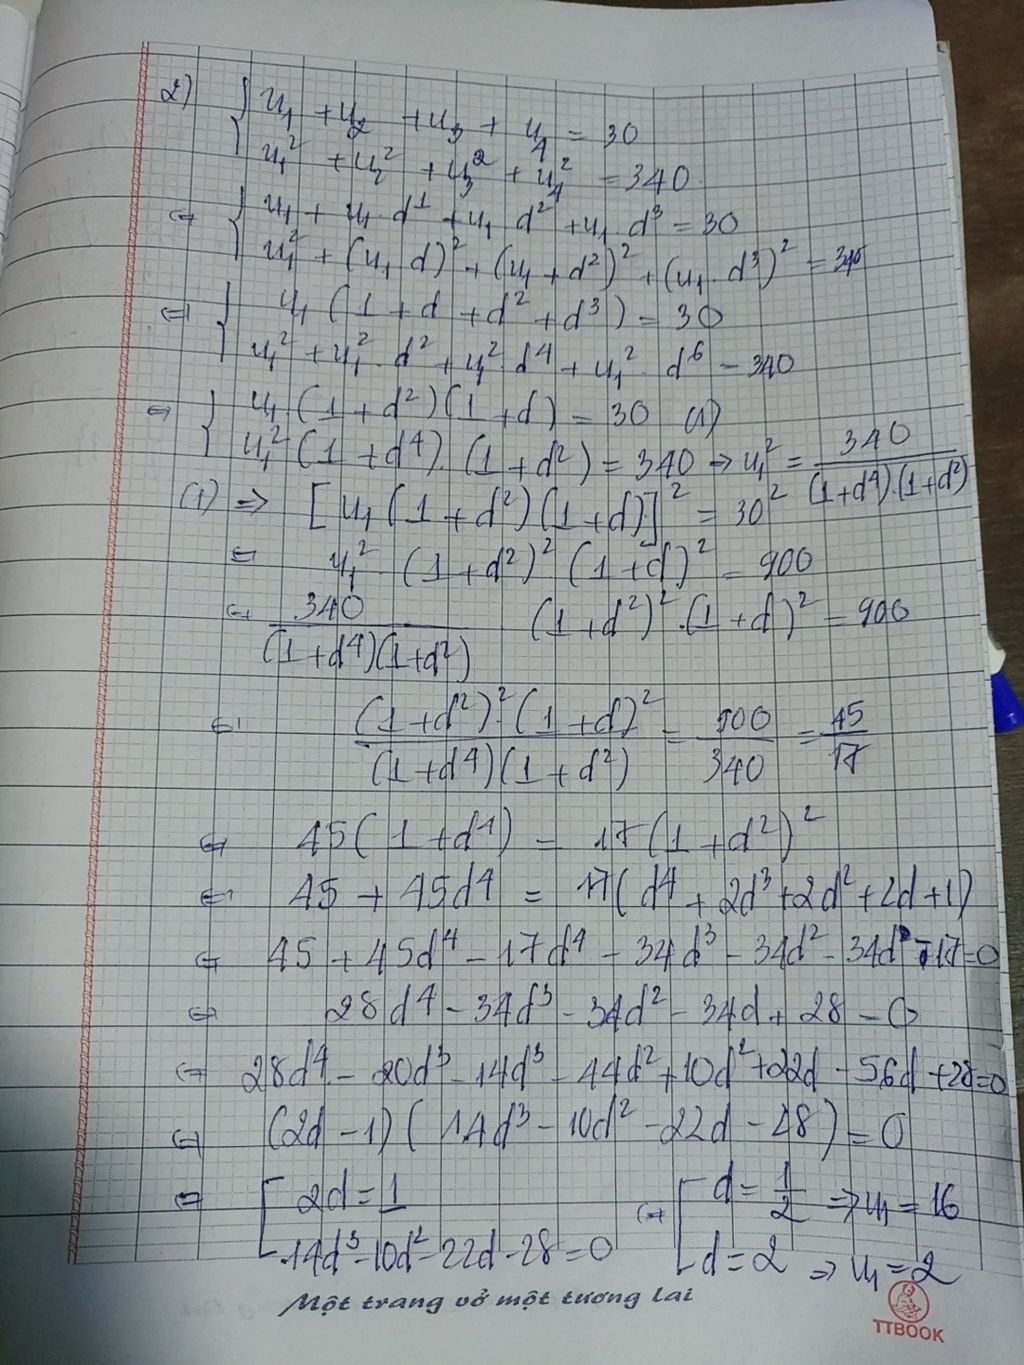 2) { u₁ + u₂ + u₃ + u₄ = 30
u₁² + u₂² + u₃² + u₄² = 340.
⇔ { u₁ + u₁ · d¹ + u₁ d² + u₁ · d³ = 30
u₁² + (u₁ d)² + (u₁ + d²)² + (u₁ · d³)² = 340
⇔ { u₁ (1 + d + d² + d³) = 30
u₁² + u₁² · d² + u₁² · d⁴ + u₁² · d⁶ = 340
⇔ { u₁ (1 + d²)(1 + d) = 30 (1)
u₁² (1 + d⁴) · (1 + d²) = 340 → u₁² = 340 / (1+d⁴).(1+d²)
(1) ⇒ [u₁ (1 + d²)(1 + d)]² = 30²
⇔ u₁² · (1 + d²)² (1 + d)² = 900
⇔ 340 / (1 + d⁴)(1+d²) (1 + d²)² . (1 + d)² = 900
⇔ (1 + d²)² (1 + d)² / (1 + d⁴)(1 + d²) = 900 / 340 = 45 / 17
⇔ 45(1 + d⁴) = 17(1 + d²)²
⇔ 45 + 45d⁴ = 17(d⁴ + 2d³ + 2d² + 2d + 1)
⇔ 45 + 45d⁴ - 17d⁴ - 34d³ - 34d² - 34d - 17 = 0
⇔ 28d⁴ - 34d³ - 34d² - 34d + 28 = 0
⇔ 28d⁴ - 20d³ - 14d³ - 44d² + 10d² + 22d - 56d + 28 = 0
⇔ (2d - 1)(14d³ - 10d² - 22d - 28) = 0
⇔ [ 2d = 1 ⇔ [ d = 1/2 ⇒ u₁ = 16
14d³ - 10d² - 22d - 28 = 0 d = 2 ⇒ u₁ = 2
Một trang vở một tương lai
TTBOOK